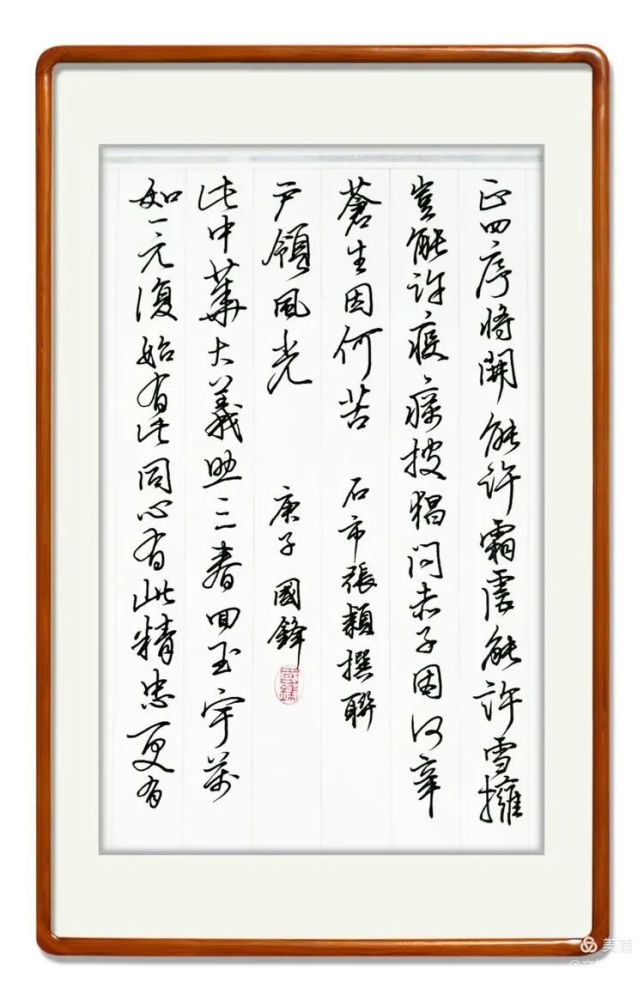 正四序将開能许霜虐能许雪擁
豈能许疫疠披猖问赤子因何辛
蒼生因何苦
石市張颖撰聯
如一元復始有此同心有此精忠更有
此中華大義三春回玉宇萬
戶領風光
庚子國鋒
國鋒
美篇